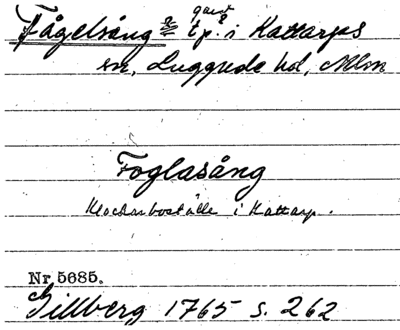 Fågelsång tp. i Kattarps
sn, Luggude hd, Mlm
Foglasång
Klockarboställe i Kattarp.
Nr 5685.
Gillberg 1765 s. 262